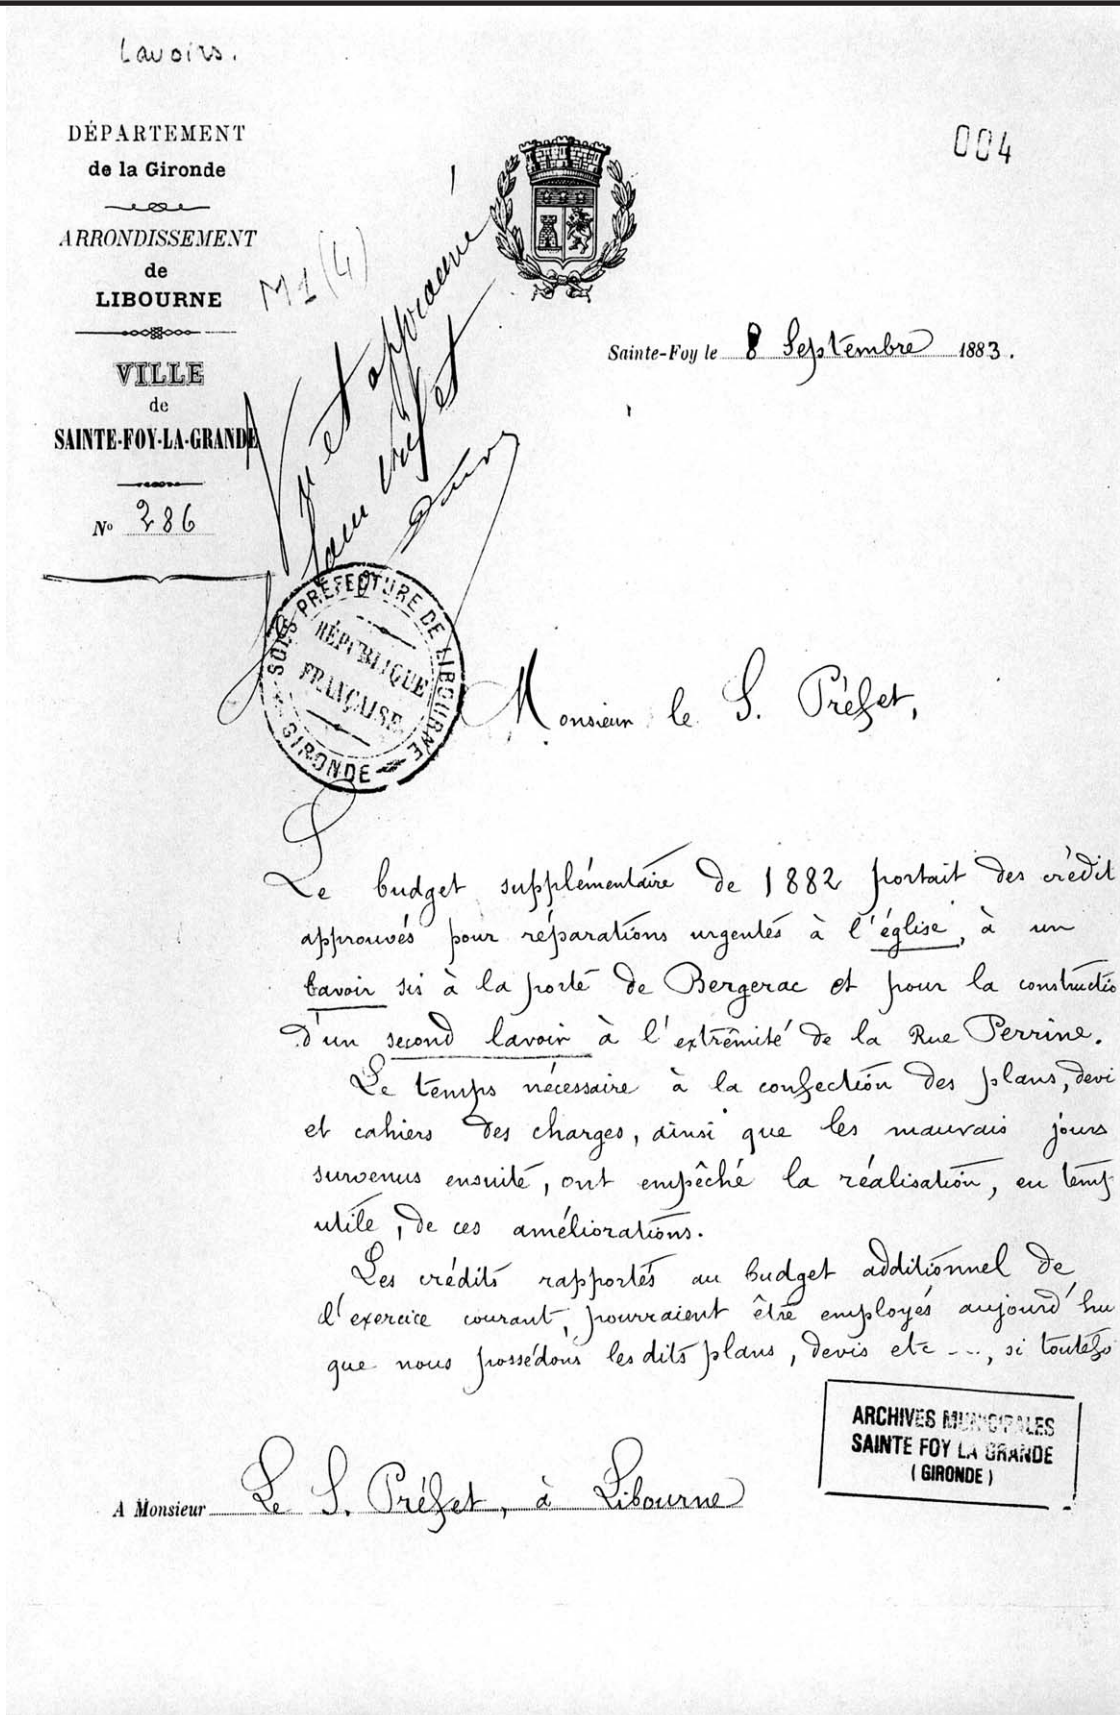 Lavoirs.
004
DÉPARTEMENT
de la Gironde
ARRONDISSEMENT
de
LIBOURNE
M1(4)
VILLE
de
SAINTE-FOY-LA-GRANDE
N° 286
Vu et approuvé
Sainte-Foy le 8 Septembre 1883.
SOUS PRÉFECTURE DE LIBOURNE
RÉPUBLIQUE
FRANÇAISE
GIRONDE
Monsieur le S. Préfet,
Le budget supplémentaire de 1882 portait des crédit
approuvés pour réparations urgentes à l'église, à un
lavoir sis à la porte de Bergerac et pour la constructio
d'un second lavoir à l'extrêmité de la Rue Perrine.
Le temps nécessaire à la confection des plans, devi
et cahiers des charges, ainsi que les mauvais jours
survenus ensuite, ont empêché la réalisation, en temp
utile, de ces améliorations.
Les crédits rapportés au budget additionnel de
l'exercice courant, pourraient être employés aujourd'hu
que nous possédons les dits plans, devis etc ..., si toutefo
ARCHIVES MUNICIPALES
SAINTE FOY LA GRANDE
( GIRONDE )
A Monsieur Le S. Préfet, à Libourne